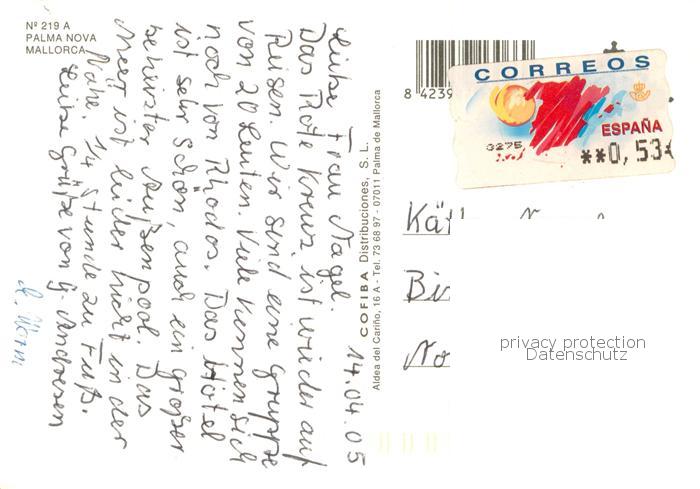 Nº 219 A
PALMA NOVA
MALLORCA
14.04.05
Liebe Frau Nagel.
Das Rote Kreuz ist wieder auf
Reisen. Wir sind eine Gruppe
von 20 Leuten. Viele kennen sich
noch von Rhodos. Das Hotel
ist sehr schön, auch ein großer
beheizter Außenpool. Das
Meer ist leider nicht in der
Nähe. 1/4 Stunde zu Fuß.
Liebe Grüße von G. Andresen
COFIBA Distribuciones, S. L.
Aldea del Cariño, 16 A - Tel. 73 68 97 - 07011 Palma de Mallorca
8 4239
CORREOS
ESPAÑA
0275
**0,53€
Kät
Bi
No
privacy protection
Datenschutz